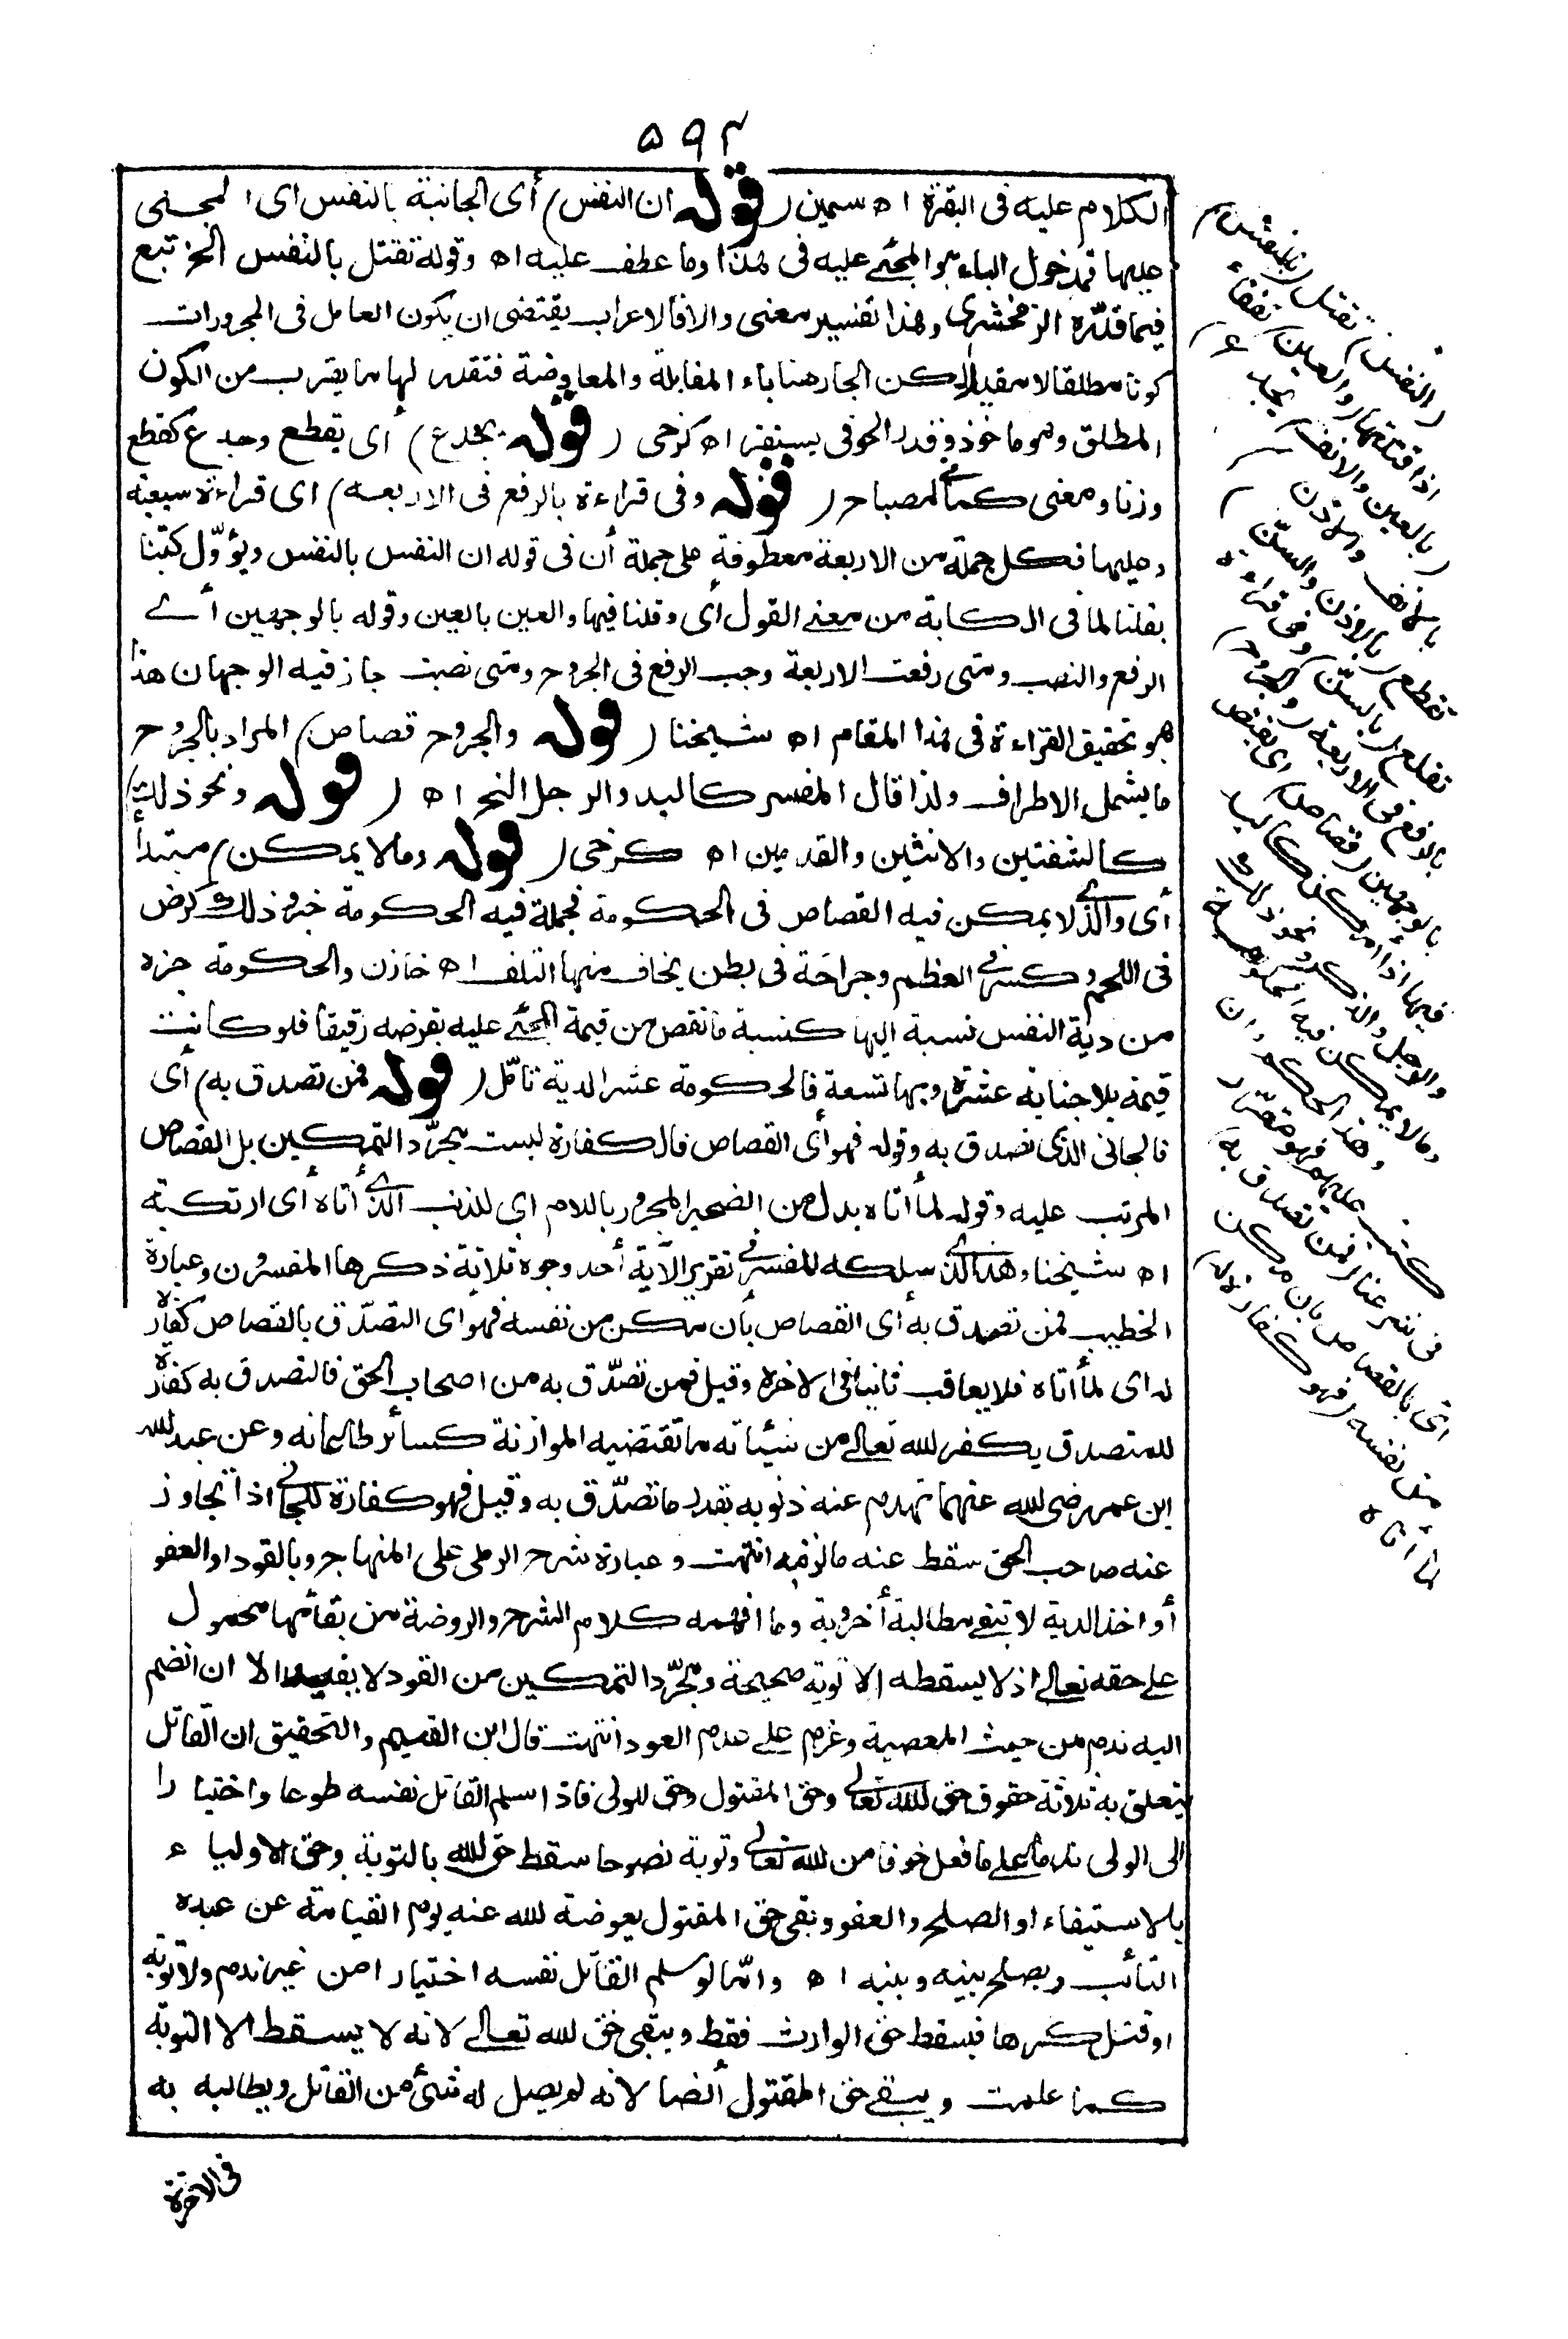 ٥٩٢
الكلام عليه فى البقرة اه سمين (قوله ان النفس) أى الجانية بالنفس اى المجنى
عليها فمدخول الباء هو المجنى عليه فى هذا وما عطف عليه اه وقوله تقتل بالنفس الخ تبع
فيما قدّره الزمخشرى وهذا تفسير معنى والا فالاعراب يقتضى ان يكون العامل فى المجرورات
كونا مطلقا لا مقيدا لكن الجار هنا باء المقابلة والمعاوضة فتقدر لها ما يقرب من الكون
المطلق وهو ماخوذ وقدر الحوفى يستقر اه كرخى (قوله يجدع) أى يقطع وجدع كقطع
وزنا ومعنى كما فى المصباح (قوله وفى قراءة بالرفع فى الاربعة) اى قراءة سبعية
وعليها فكل جملة من الاربعة معطوفة على جملة أن فى قوله ان النفس بالنفس ويؤوّل كتبنا
بقلنا لما فى الكتابة من معنى القول أى وقلنا فيها والعين بالعين وقوله بالوجهين أى
الرفع والنصب ومتى رفعت الاربعة وجب الرفع فى الجروح ومتى نصبت جاز فيه الوجهان هذا
هو تحقيق القراءة فى هذا المقام اه شيخنا (قوله والجروح قصاص) المراد بالجروح
ما يشمل الاطراف ولذا قال المفسر كاليد والرجل الخ اه (قوله ونحو ذلك)
كالشفتين والانثيين والقدمين اه كرخى (قوله وما لا يمكن) مبتدأ
أى والذى لا يمكن فيه القصاص فى الحكومة فجملة فيه الحكومة خبره وذلك كرض
فى اللحم وكسر فى العظم وجراحة فى بطن يخاف منها التلف اه خازن والحكومة جزء
من دية النفس نسبة اليها كنسبة ما نقص من قيمة المجنى عليه بفرضه رقيقا فلو كانت
قيمته بلا جناية عشرة وبها تسعة فالحكومة عشر الدية تامّل (قوله فمن تصدق به) أى
فالجانى الذى تصدق به وقوله فهو أى القصاص فالكفارة ليست بمجرّد التمكين بل القصاص
المرتب عليه وقوله لما أتاه بدل من الضمير المجرور باللام اى للذنب الذى أتاه أى ارتكبه
اه شيخنا وهذا الذى سلكه المفسر فى تقرير الآية أحد وجوه ثلاثة ذكرها المفسرون وعبارة
الخطيب فمن تصدق به أى القصاص بأن مكن من نفسه فهو اى التصدّق بالقصاص كفارة
له اى لما أتاه فلا يعاقب ثانيا فى الاخرة وقيل فمن تصدّق به من اصحاب الحق فالتصدق به كفارة
للمتصدق يكفر الله تعالى من سيئاته ما تقتضيه الموازنة كسائر طاعاته وعن عبد الله
ابن عمر رضى الله عنهما تهدم عنه ذنوبه بقدر ما تصدّق به وقيل فهو كفارة للجانى اذا تجاوز
عنه صاحب الحق سقط عنه ما لزمه انتهت وعبارة شرح الرملى على المنهاج وبالقود او العفو
أو اخذ الدية لا تبقى مطالبة أخروية وما افهمه كلام الشرح والروضة من بقائها محمول
على حقه تعالى اذ لا يسقطه الا توبة صحيحة ومجرّد التمكين من القود لا يفيد الا ان انضم
اليه ندم من حيث المعصية وعزم على عدم العود انتهت قال ابن القيم والتحقيق ان القاتل
يتعلق به ثلاثة حقوق حق لله تعالى وحق المقتول وحق للولى فاذا اسلم القاتل نفسه طوعا واختيارا
الى الولى ندما على ما فعل خوفا من الله تعالى وتوبة نصوحا سقط حق الله بالتوبة وحق الاولياء
بالاستيفاء او الصلح والعفو وبقى حق المقتول يعوضه الله عنه يوم القيامة عن عبده
التائب ويصلح بينه وبينه اه وامّا لو سلم القاتل نفسه اختيارا من غير ندم ولا توبة
او قتل كرها فيسقط حق الوارث فقط ويبقى حق لله تعالى لانه لا يسقط الا التوبة
كما علمت ويبقى حق المقتول أيضا لانه لم يصل له شئ من القاتل ويطالبه به
فى الاخرة
(النفس) تقتل (بالنفس)
اذا قتلتها (والعين) تفقأ
(بالعين والانف) يجدع
(بالانف والاذن)
تقطع (بالاذن والسنّ)
تقلع (بالسنّ) وفى قراءة
بالرفع فى الاربعة (والجروح)
بالوجهين (قصاص) اى يقتص
فيها اذا أمكن كاليد
والرجل والذكر ونحو ذلك
وما لا يمكن فيه الحكومة
وهذا الحكم وان
كتب عليهم فهو مقرّر
فى شرعنا (فمن تصدق به)
اى بالقصاص بان مكن
من نفسه (فهو كفارة له)
لما أتاه